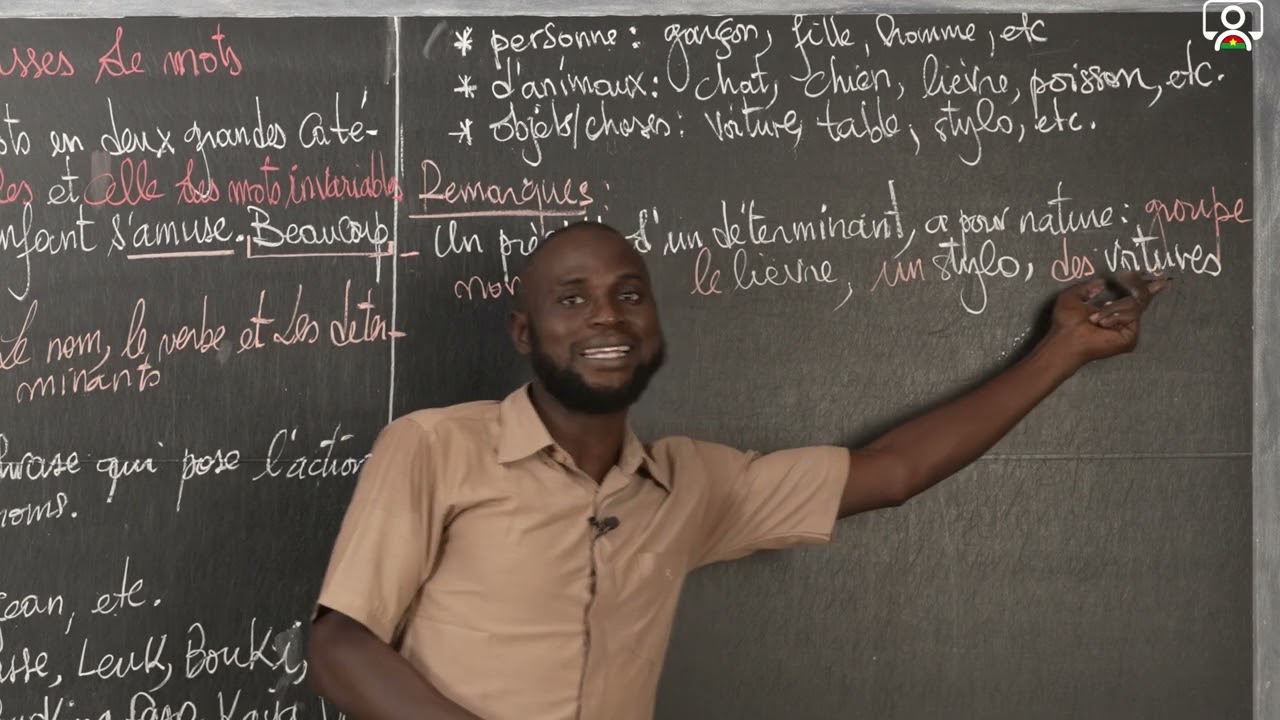 sses de mots
ots en deux grandes caté-
les et celle des mots invariables
nfant s'amuse. Beaucoup
Le nom, le verbe et les déter-
minants
hrase qui pose l'action
noms.
Jean, etc.
sse, Leuk, Bouki,
* personne : garçon, fille, homme, etc
* d'animaux : chat, chien, lièvre, poisson, etc.
* objets/choses : voiture, table, stylo, etc.
Remarques :
- Un d'un déterminant, a pour nature : groupe
le lièvre, un stylo, des voitures